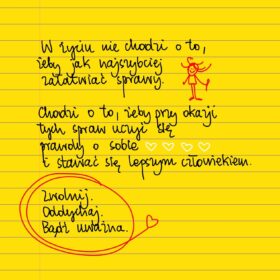 W życiu nie chodzi o to,
żeby jak najszybciej
załatwiać sprawy.
Chodzi o to, żeby przy okazji
tych spraw uczyć się
prawdy o sobie
i stawać się lepszym człowiekiem.
Zwolnij.
Oddychaj.
Bądź uważna.